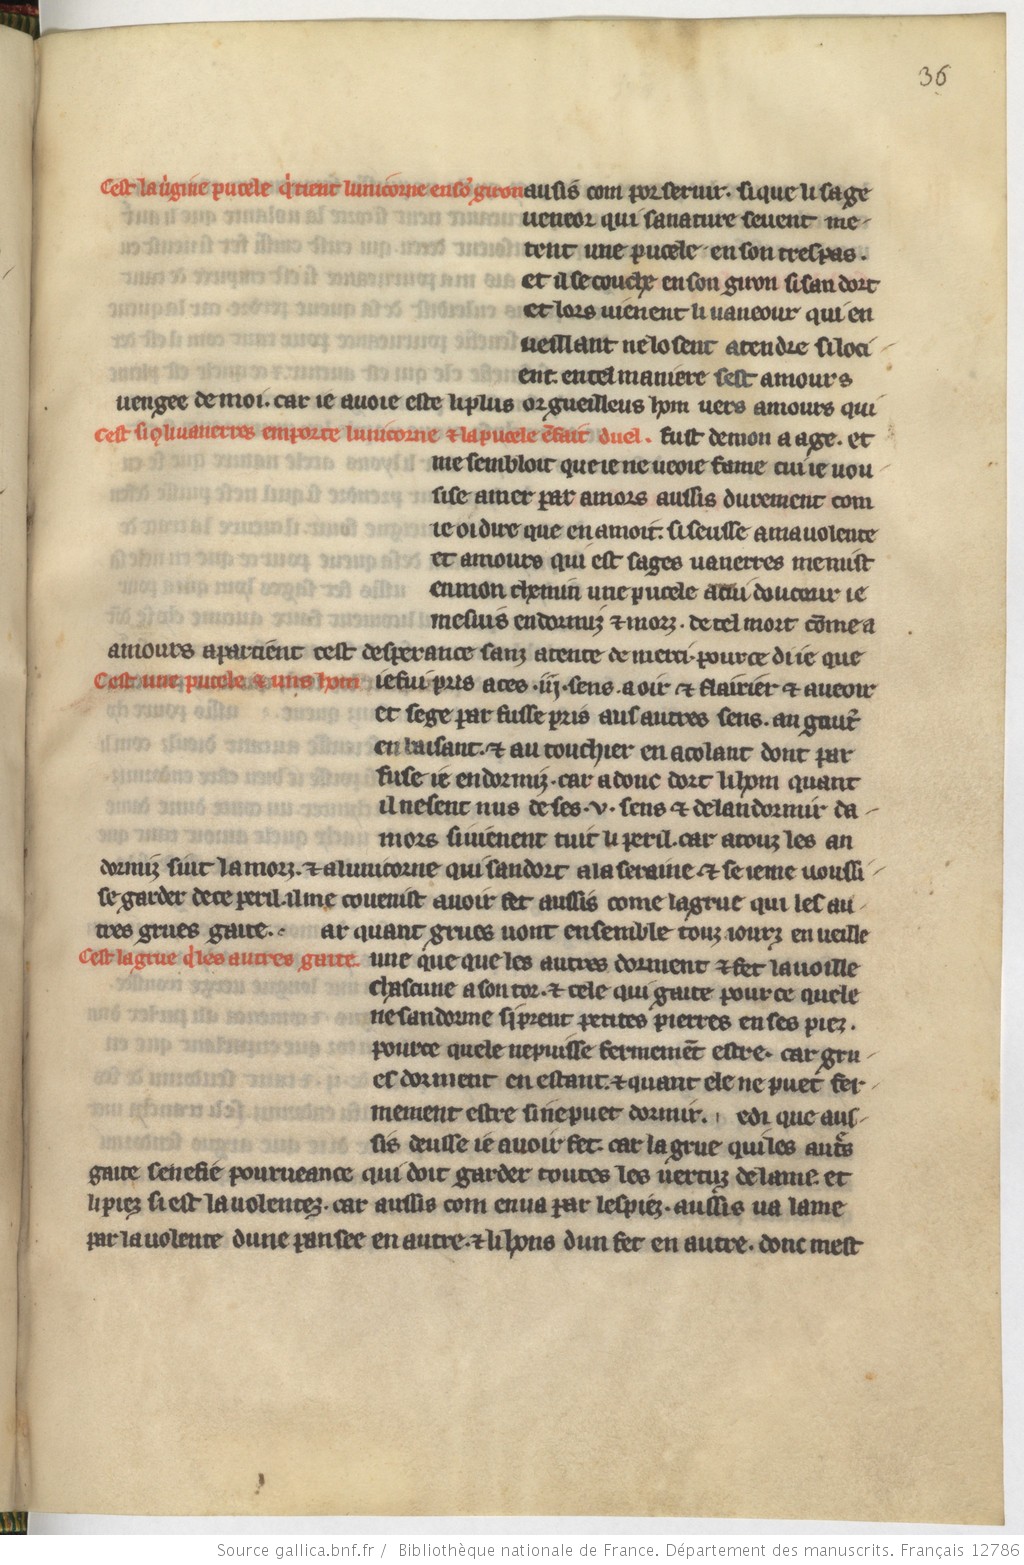 36
Cest la uᷤgine pucele q̇ tient lunicorne en sō giron ausis com por seruir. si que li sage
ueneor qui sa nature seuent me-
tent une pucele en son trespas.
et il se couche en son giron si san dort
et lors uienent li uaneour qui en
ueillant ne lo sent atendre si loci-
ent. en tel maniere sest amours
uengee de moi. car ie auoie este li plus orgueilleus hom uers amours qui
Cest si q̇ li uanerres emporte lunicorne & la pucele ē fait duel. fust de mon aage. et
me sembloit que ie ne ueoie fame cui ie uou-
sise amer par amors aussis durement com
ie oi dire que en amoit. si seusse a ma uolente
et amours qui est sages uanerres me mist
en mon chemin une pucele a cui doucour ie
me suis endormiz & morz. de tel mort cōme a
amours apartient cest desperance sanz atente de merci. pour ce di ie que
Cest une pucele & uns hom ie fui pris a ces .iij. sens. a oir & flairier & a ueoir
et se ge par fusse pris aus autres sens. au goutr̄
en baisant. & au touchier en acolant dont par
fuse ie endormiz. car adonc dort li hom quant
il ne sent nus de ses .v. sens & de landormir da-
mors si uienent tuit li peril. car a touz les an
dormiz siut la morz. & a lunicorne qui sandort a la seraine. & se ie me uoussi-
se garder de ce peril. il me couenist auoir fet aussis come la grue qui les au-
tres grues gaite. ar quant grues uont ensemble touz iourz en ueille
Cest la grue q̇ les autres gaite. une que que les autres dorment & fet la uoille
chascune a son tor. & cele qui gaite pour ce quele
ne sandorme si prent petites pierres en ses piez.
pour ce quele ne puisse fermemēt estre. car gru-
es dorment en estant. & quant ele ne puet fer-
mement estre si ne puet dormir. e di que aus-
sis deusse ie auoir fet. car la grue qui les autr̄s
gaite senefie pourueance qui doit garder toutes les uertuz de lame. et
li piez si est la uolentez. car aussis com en ua par les piez. aussis ua lame
par la uolente dune pansee en autre. & li hons dun fet en autre. donc mest
Source gallica.bnf.fr / Bibliothèque nationale de France. Département des manuscrits. Français 12786